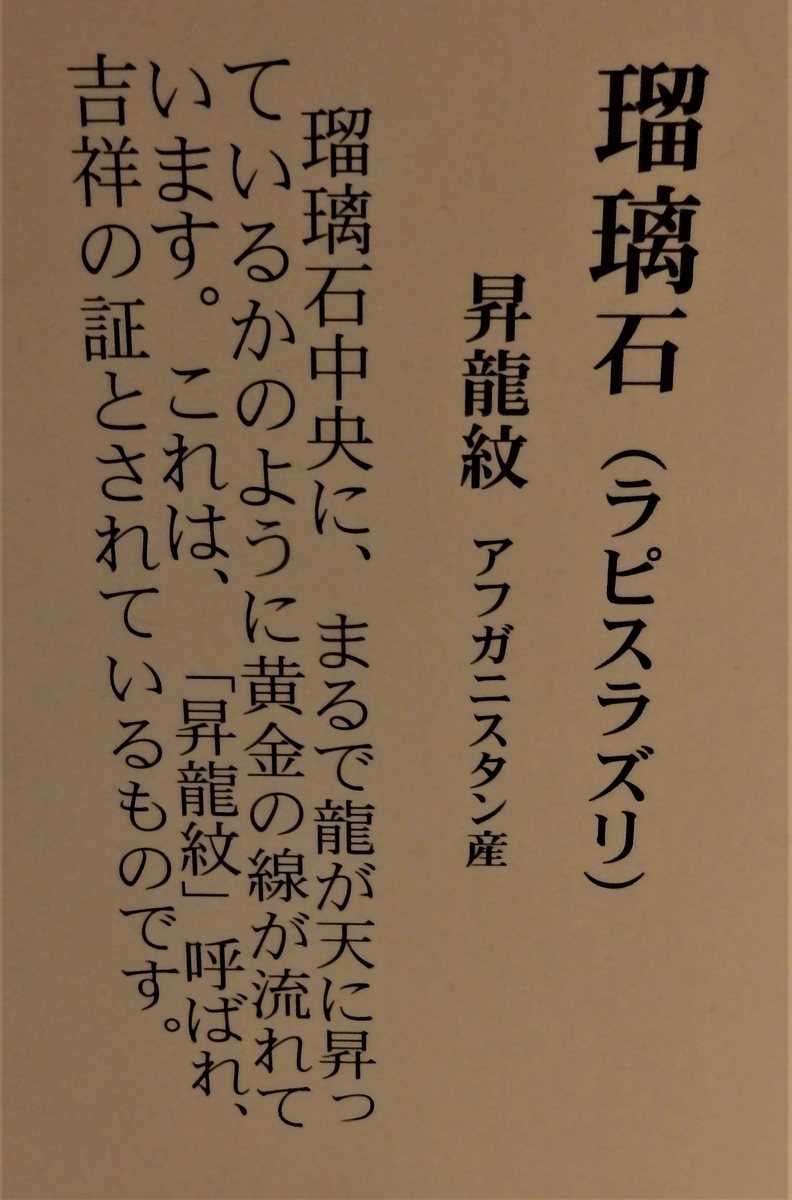 瑠璃石（ラピスラズリ）
昇龍紋 アフガニスタン産
瑠璃石中央に、まるで龍が天に昇っ
ているかのように黄金の線が流れて
います。これは、「昇龍紋」呼ばれ、
吉祥の証とされているものです。